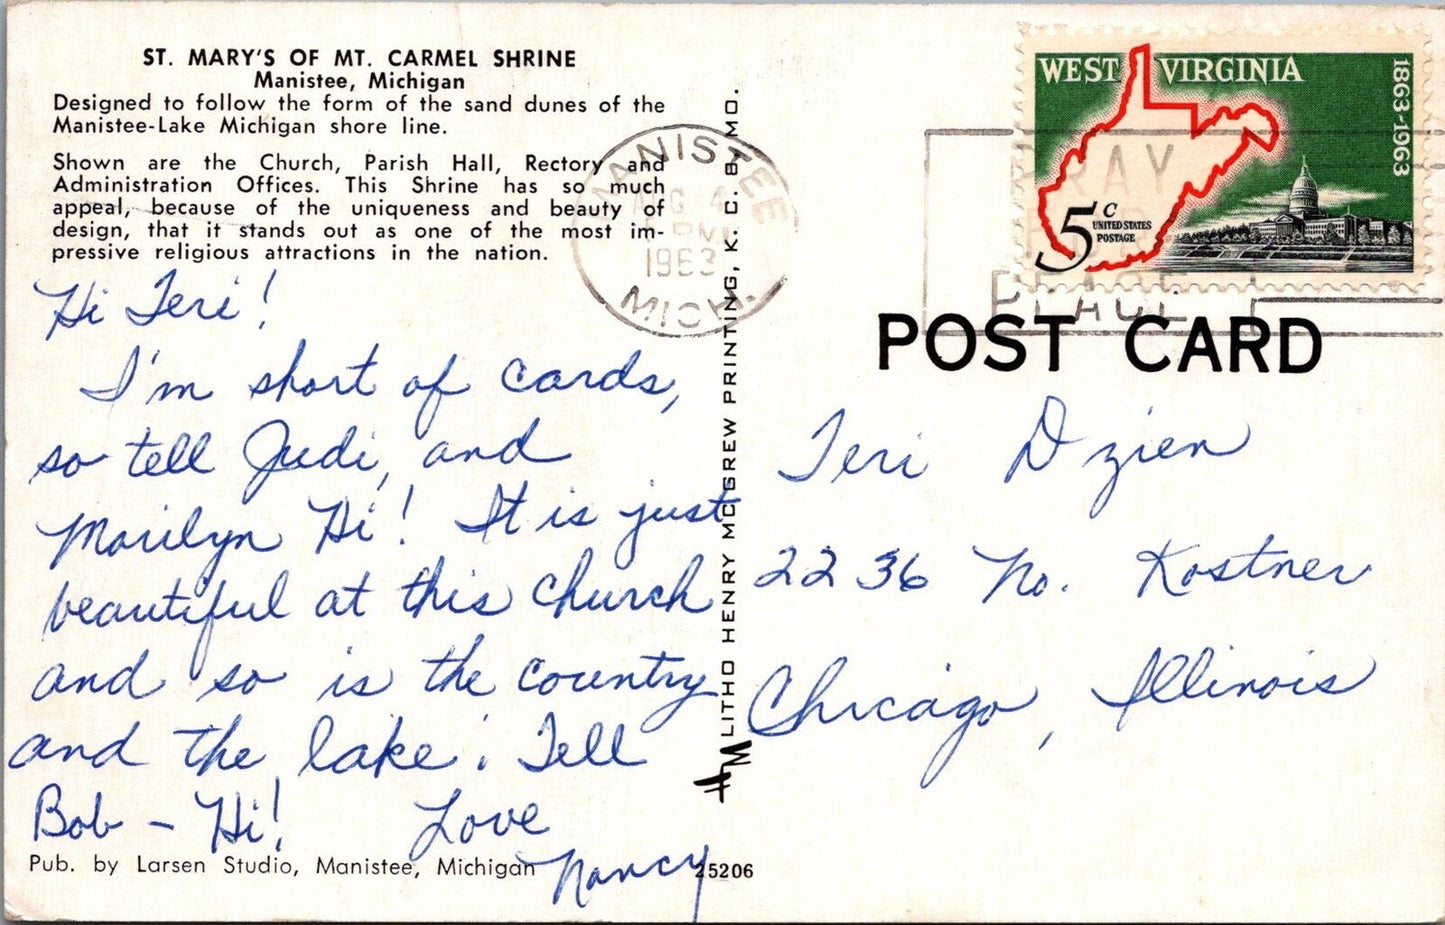 ST. MARY'S OF MT. CARMEL SHRINE
Manistee, Michigan
Designed to follow the form of the sand dunes of the
Manistee-Lake Michigan shore line.
Shown are the Church, Parish Hall, Rectory and
Administration Offices. This Shrine has so much
appeal, because of the uniqueness and beauty of
design, that it stands out as one of the most im-
pressive religious attractions in the nation.
Hi Teri!
I'm short of cards,
so tell Judi, and
Marilyn Hi! It is just
beautiful at this church
and so is the country
and the lake. Tell
Bob - Hi!
Love
Nancy
Pub. by Larsen Studio, Manistee, Michigan
25206
MANISTEE
AUG 4
PM
1963
MICH.
LITHO HENRY MCGREW PRINTING, K. C. 8, MO.
HM
WEST VIRGINIA
1863-1963
5c
UNITED STATES
POSTAGE
PRAY
FOR
PEACE
POST CARD
Teri Dzien
2236 No. Kostner
Chicago, Illinois